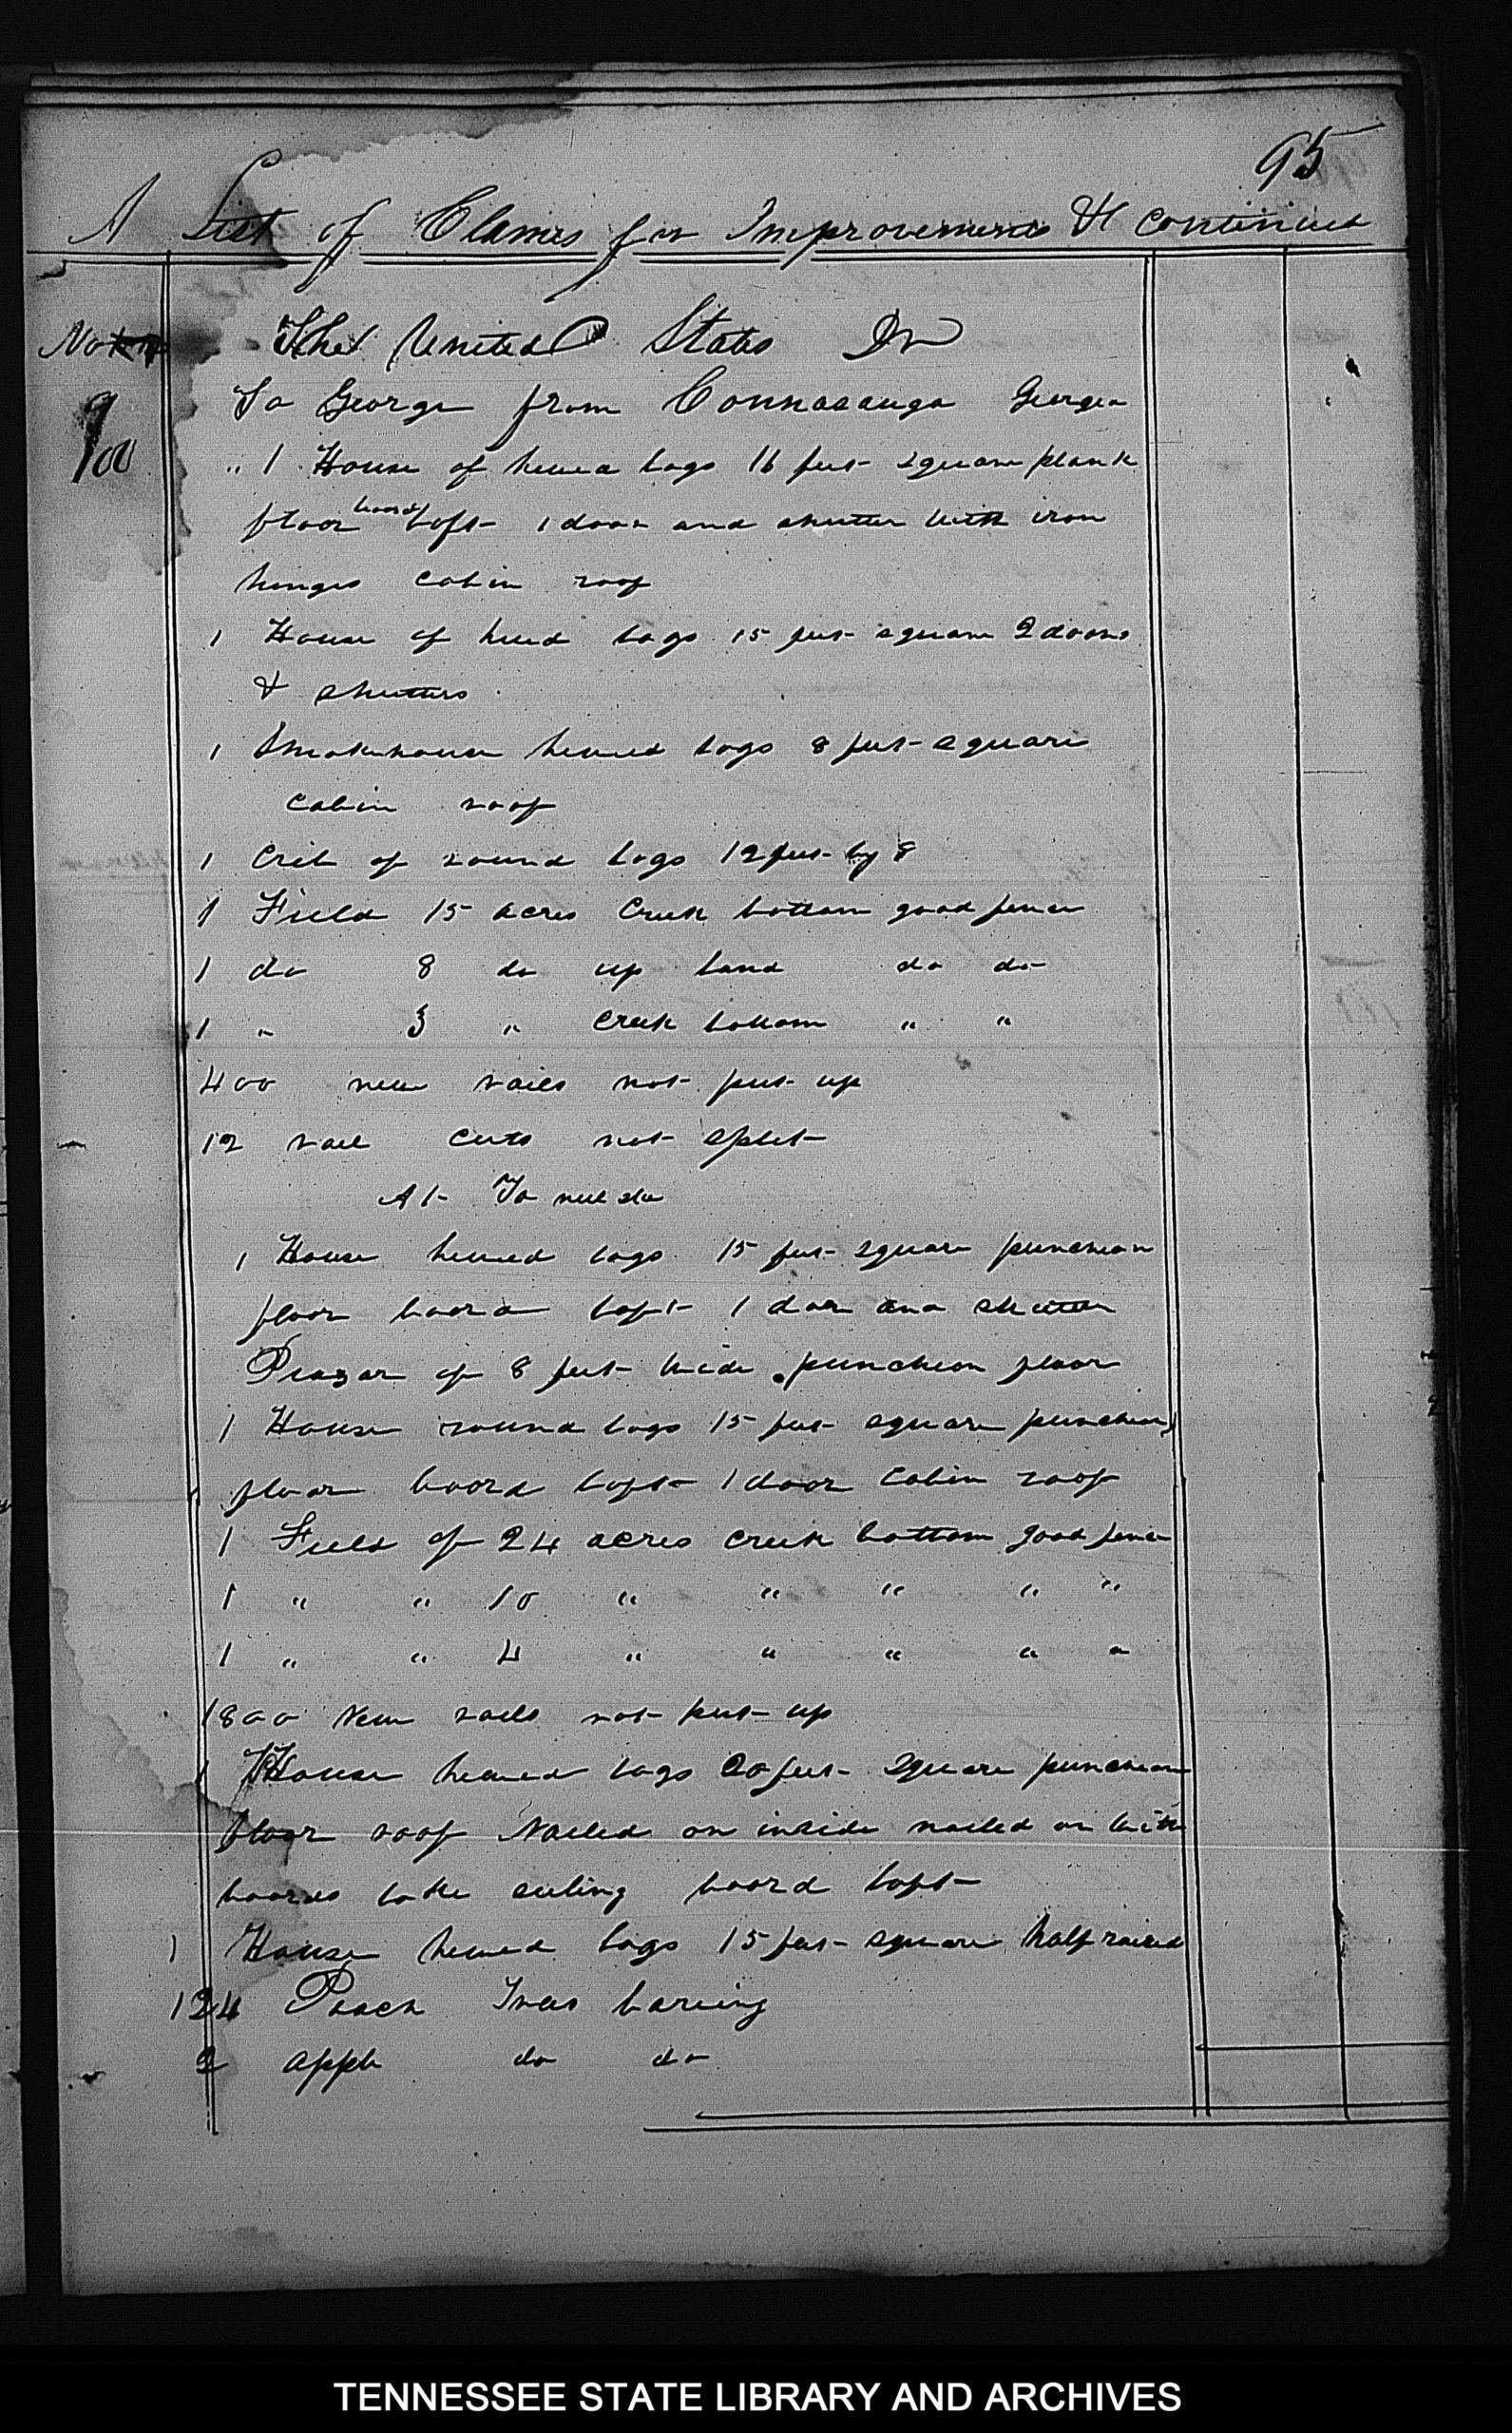 95
A List of Claims for Improvements &c continued
No
The United States Dr
100
To George from Connasauga Georgia
" 1 House of hewed logs 16 feet square plank
floor board loft 1 door and shutter with iron
hinges cabin roof
1 House of hewed logs 15 feet square 2 doors
& shutters
1 Smokehouse hewed logs 8 feet square
cabin roof
1 Crib of round logs 12 feet by 8
1 Field 15 acres Creek bottom good fence
1 do 8 do up land do do
1 " 3 " Creek bottom " "
400 new rails not put up
12 rail cuts not split
At
1 House hewed logs 15 feet square puncheon
floor board loft 1 door and shutter
Piazar of 8 feet wide puncheon floor
1 House round logs 15 feet square puncheon
floor board loft 1 door cabin roof
1 Field of 24 acres creek bottom good fence
1 " " 10 " " " " "
1 " " 4 " " " " "
1800 New rails not put up
1 House hewed logs 20 feet square puncheon
floor roof Nailed on inside nailed on with
boards ceiling board loft
1 House hewed logs 15 feet square half raised
124 Peach Trees baring
2 apple do do
TENNESSEE STATE LIBRARY AND ARCHIVES